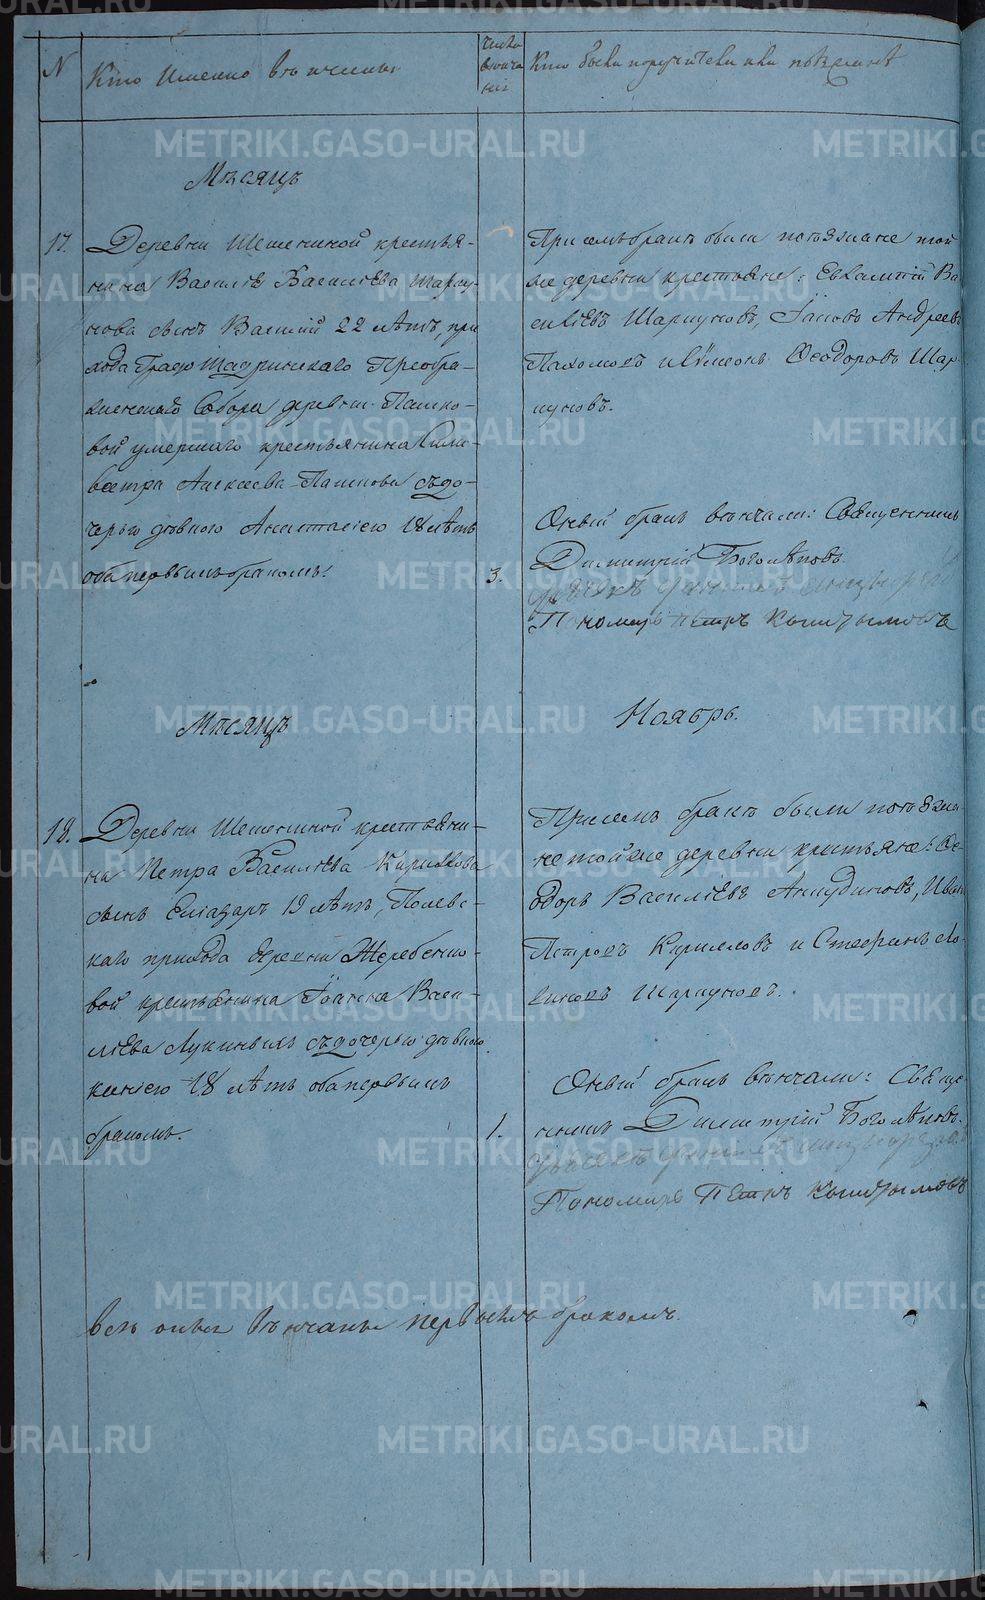 N
Кто именно венчаны
Число
венча
нія
Кто были поручители или поезжанѣ
Мѣсяцъ
17.
Деревни Шешениной крестья-
нина Василіѣ Васильева Шаръу-
нова сынъ Василий 22 лѣтъ, при
хода Градо Шадринскаго Преобра-
женскаго Собора деревни Пашко-
вой умершаго крестьянина Сили-
вестра Алексѣева Пашкова съ до-
черью дѣвкою Анастасіею 18 лѣтъ
оба первымъ бракомъ.
3.
При семъ бракѣ были поезжане той
же деревни крестьяне: Евлампій Ва
силіевъ Шаръуновъ, Іаковъ Андреевъ
Пахомовъ и Сѵмеонъ Ѳеодоровъ Шар-
ъуновъ.
Оный бракъ вѣнчали: Священникъ
Димитрій Боголѣповъ
Пономарь Петръ Кыштымовъ
Мѣсяцъ
Ноябрь.
18.
Деревни Шешениной крестьяни-
на Петра Васильева Кирилова
сынъ Еліазаръ 19 лѣтъ, Полевс-
каго прихода деревни Жеребенко-
вой крестьянина Іоанна Васи-
льева Лукиныхъ съ дочерью дѣвкою
ксеніею 18 лѣтъ оба первымъ
бракомъ.
1.
При семъ бракѣ были поезжа
не той же деревни крестьяне: Ѳе-
одоръ Василіевъ Анкудиновъ, Иванъ
Петровъ Кириловъ и Стефанъ Ло-
гиновъ Шаръуновъ.
Оный бракъ вѣнчали: Священ-
никъ Димитрій Боголѣповъ.
Пономарь Петръ Кыштымовъ
всѣ оные вѣнчаны первымъ бракомъ.
METRIKI.GASO-URAL.RU